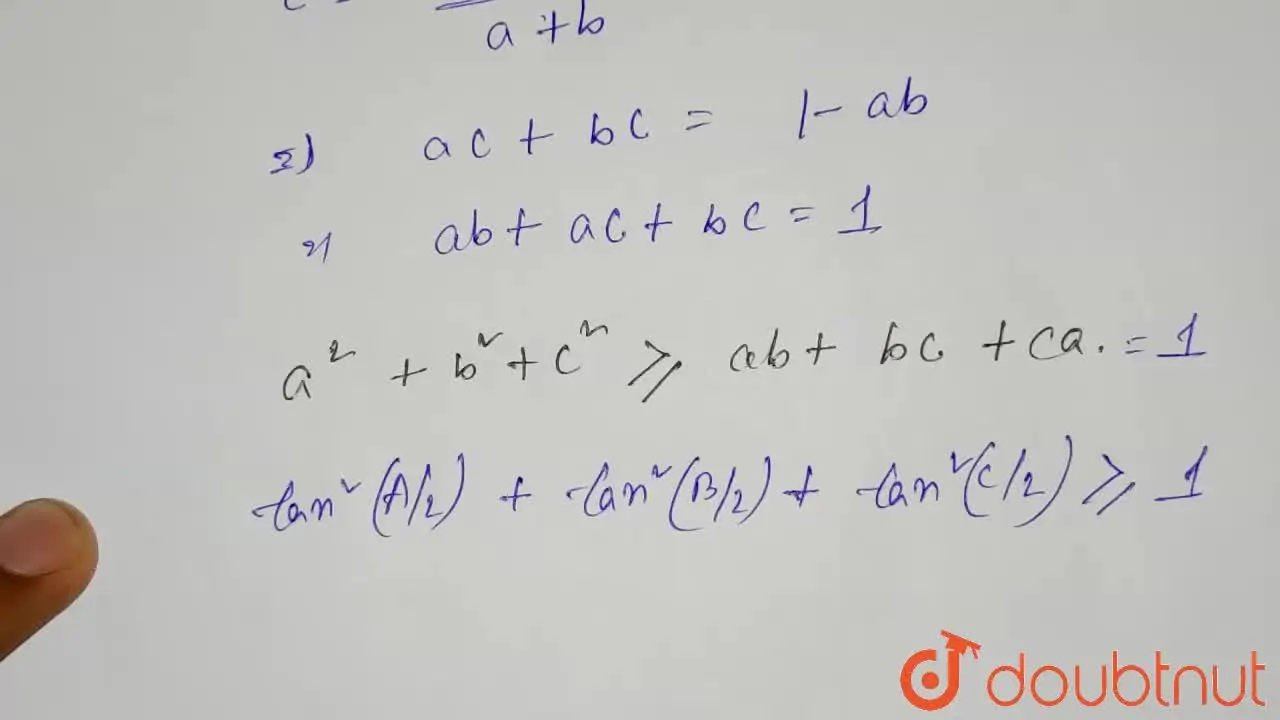 a + b
⇒) ac + bc = 1 - ab
⇒) ab + ac + bc = 1
a² + b² + c² ⩾ ab + bc + ca. = 1
tan² (A/2) + tan² (B/2) + tan² (C/2) ⩾ 1
doubtnut